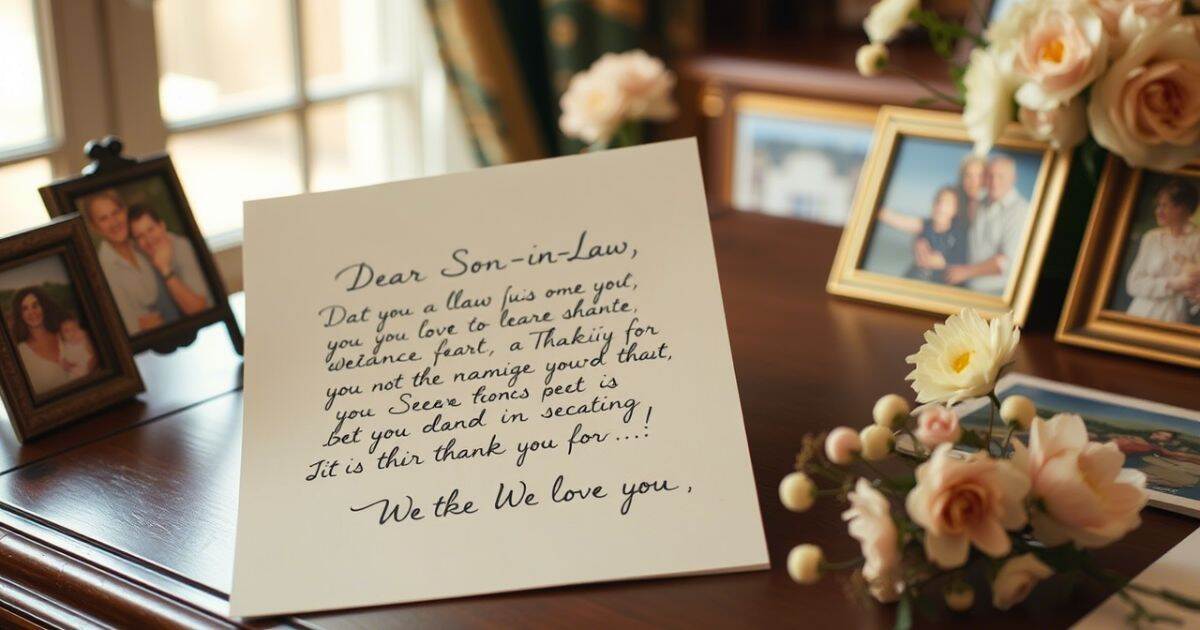 Dear Son-in-Law,
Dat you a llaw fuis ome you,
you you love to leare shante,
welance feart, a Thakiiy for
you not the namige yourd thait,
you Seeve fioncs peet is
bet you dand in secating
Jit is thir thank you for ...!
We tke We love you,